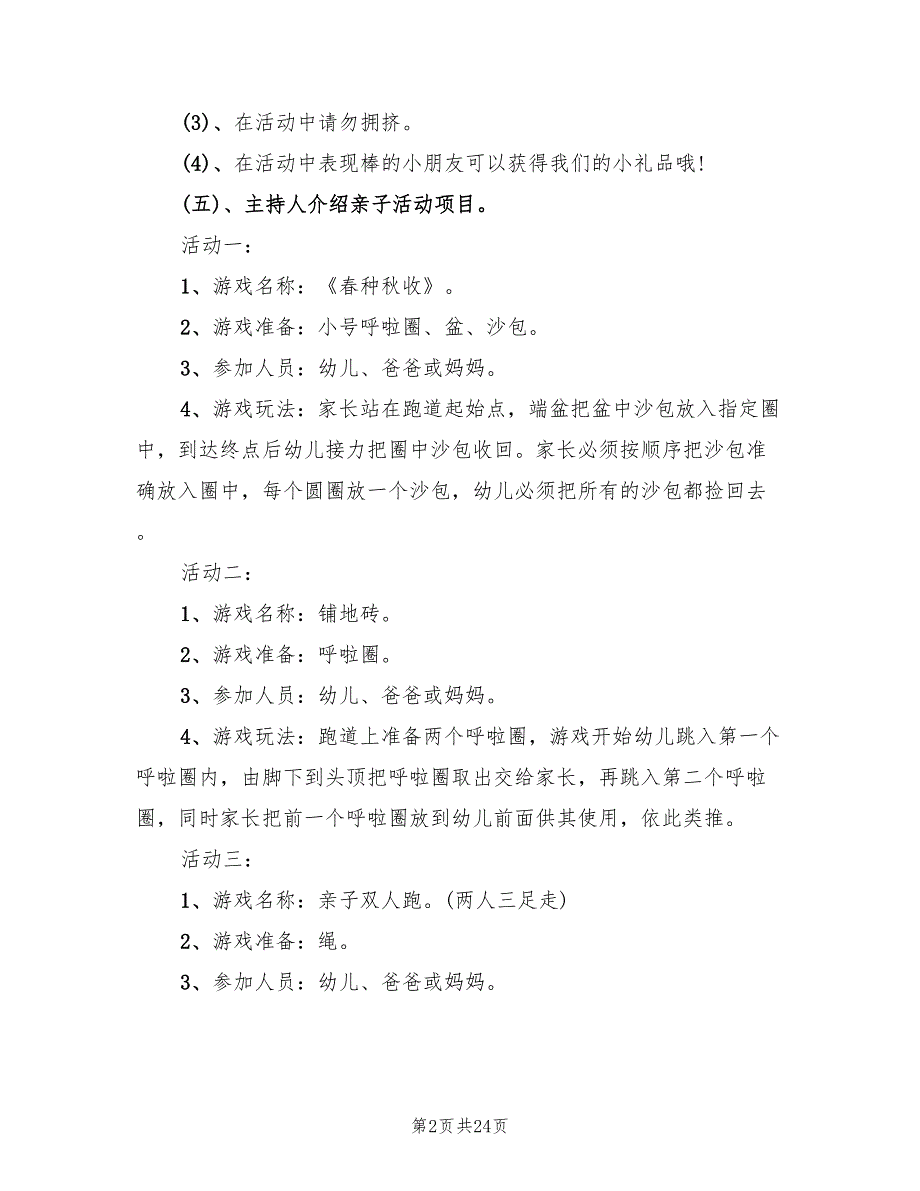 (3)、在活动中请勿拥挤。
(4)、在活动中表现棒的小朋友可以获得我们的小礼品哦!
(五)、主持人介绍亲子活动项目。
活动一：
1、游戏名称：《春种秋收》。
2、游戏准备：小号呼啦圈、盆、沙包。
3、参加人员：幼儿、爸爸或妈妈。
4、游戏玩法：家长站在跑道起始点，端盆把盆中沙包放入指定圈
中，到达终点后幼儿接力把圈中沙包收回。家长必须按顺序把沙包准
确放入圈中，每个圆圈放一个沙包，幼儿必须把所有的沙包都捡回去
。
活动二：
1、游戏名称：铺地砖。
2、游戏准备：呼啦圈。
3、参加人员：幼儿、爸爸或妈妈。
4、游戏玩法：跑道上准备两个呼啦圈，游戏开始幼儿跳入第一个
呼啦圈内，由脚下到头顶把呼啦圈取出交给家长，再跳入第二个呼啦
圈，同时家长把前一个呼啦圈放到幼儿前面供其使用，依此类推。
活动三：
1、游戏名称：亲子双人跑。(两人三足走)
2、游戏准备：绳。
3、参加人员：幼儿、爸爸或妈妈。
第2页共24页